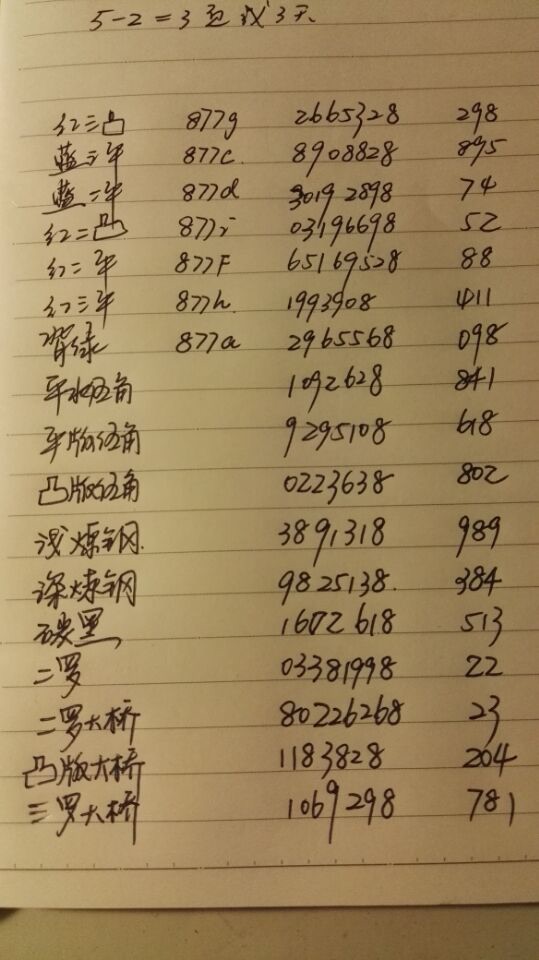 5-2=3 或3天
红三凸 877g 2665328 298
蓝三平 877c. 8908828 895
蓝二平 877d 30192898 74
红二凸 877i 03196698 52
红二平 877F 65169528 88
红三平 877h 1993908 411
背绿 877a 2965568 098
平水伍角 1092628 841
平版伍角 9295108 618
凸版伍角 0223638 802
浅炼钢. 3891318 989
深炼钢 9825138. 384
碳黑 1602618 513
二罗 03381998 22
二罗大桥 80226268 23
凸版大桥 1183828 204
三罗大桥 1069298 781